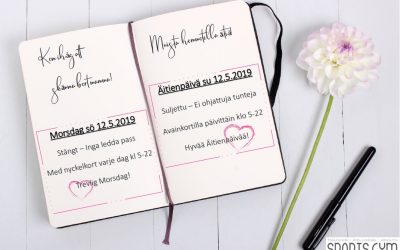 Kom ihåg att
skämma bort mamma!
Morsdag sö 12.5.2019
Stängt – Inga ledda pass
Med nyckelkort varje dag kl 5-22
Trevlig Morsdag!
Muista hemmotella äitiä
Äitienpäivä su 12.5.2019
Suljettu – Ei ohjattuja tunteja
Avainkortilla päivittäin klo 5-22
Hyvää Äitienpäivää!
SPORTS GYM